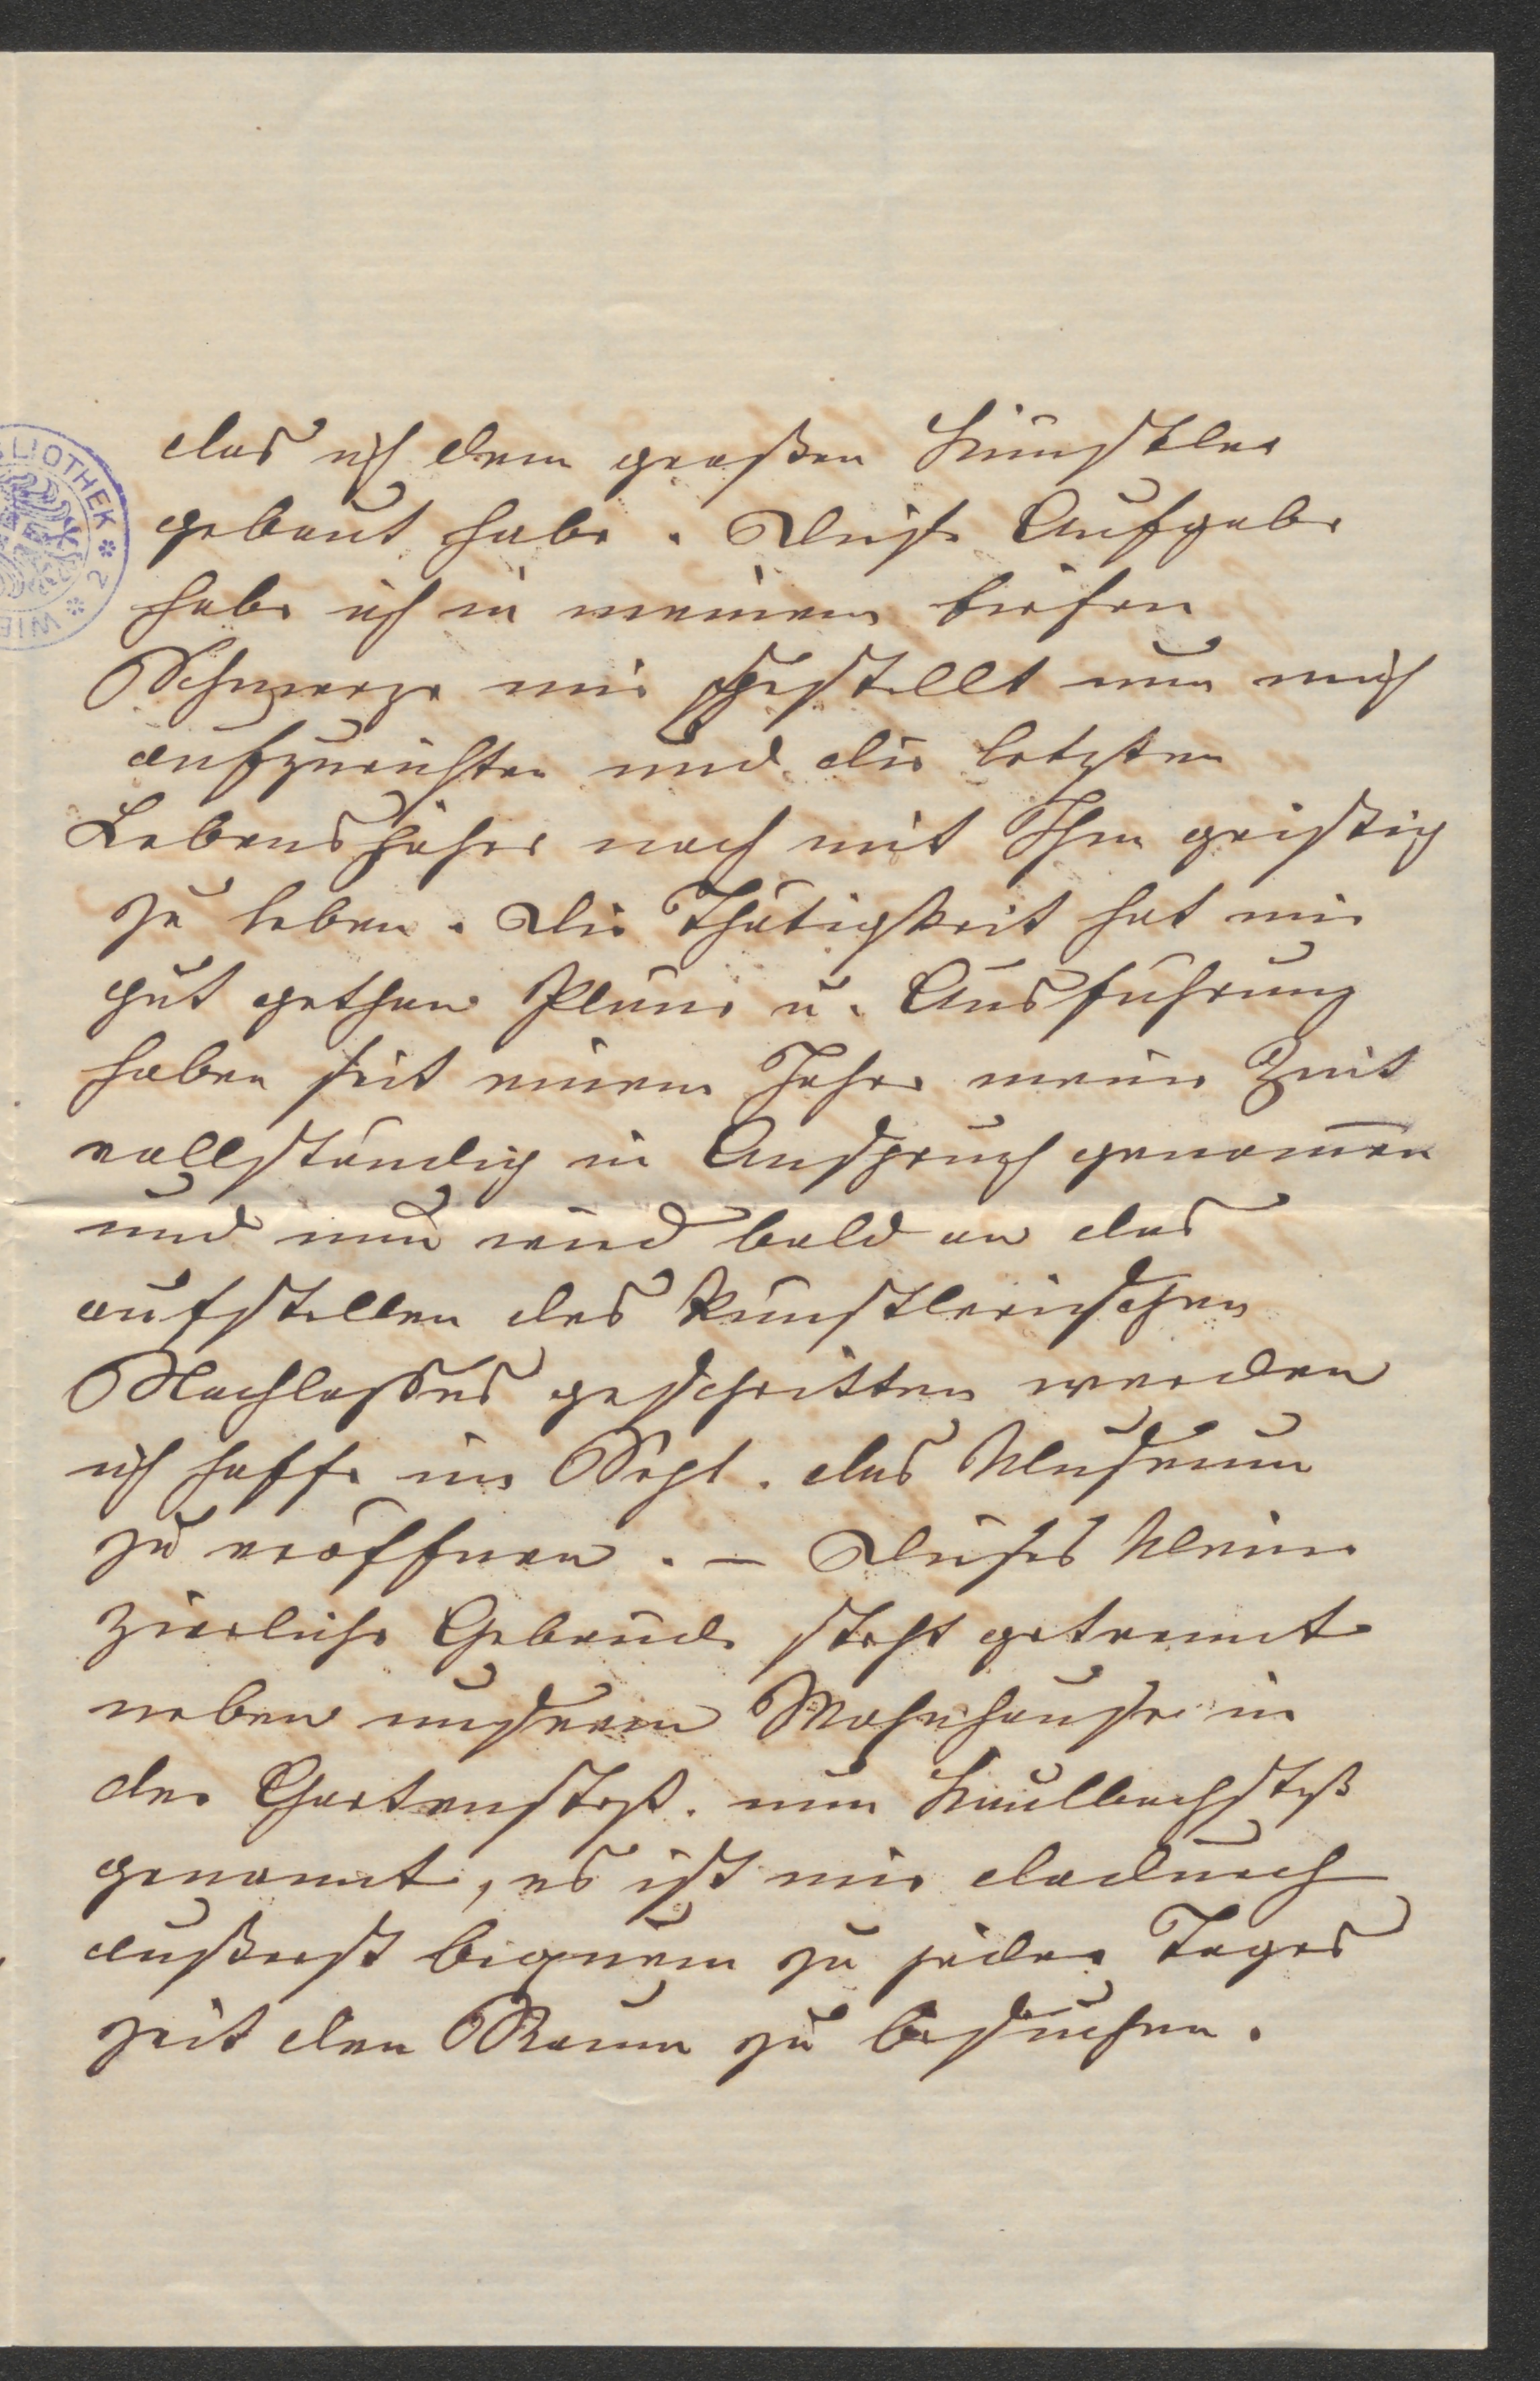 das ich dem großen Künstler
gebaut habe. Diese Aufgabe
habe ich in meinem tiefen
Schmerze mir gestellt um mich
aufzurichten und die letzten
Lebensjahre noch mit Ihm geistig
zu leben. Die Thätigkeit hat mir
gut gethan Pläne u. Ausführung
haben seit einem Jahre meine Zeit
vollständig in Anspruch genom̄en
und nun wird bald an das
aufstellen des künstlerischen
Nachlasses geschritten werden
ich hoffe im Sept. das Museum
zu eröffnen. – Dieses kleine
zierliche Gebäude steht getrennt
neben unserem Wohnhause in
der Gartenstrß. nun Kaulbachstrß
genannt, es ist mir dadurch
äußerst biquem zu jeder Tages
zeit den Raum zu besuchen.
LIOTHEK * 2 * WIE